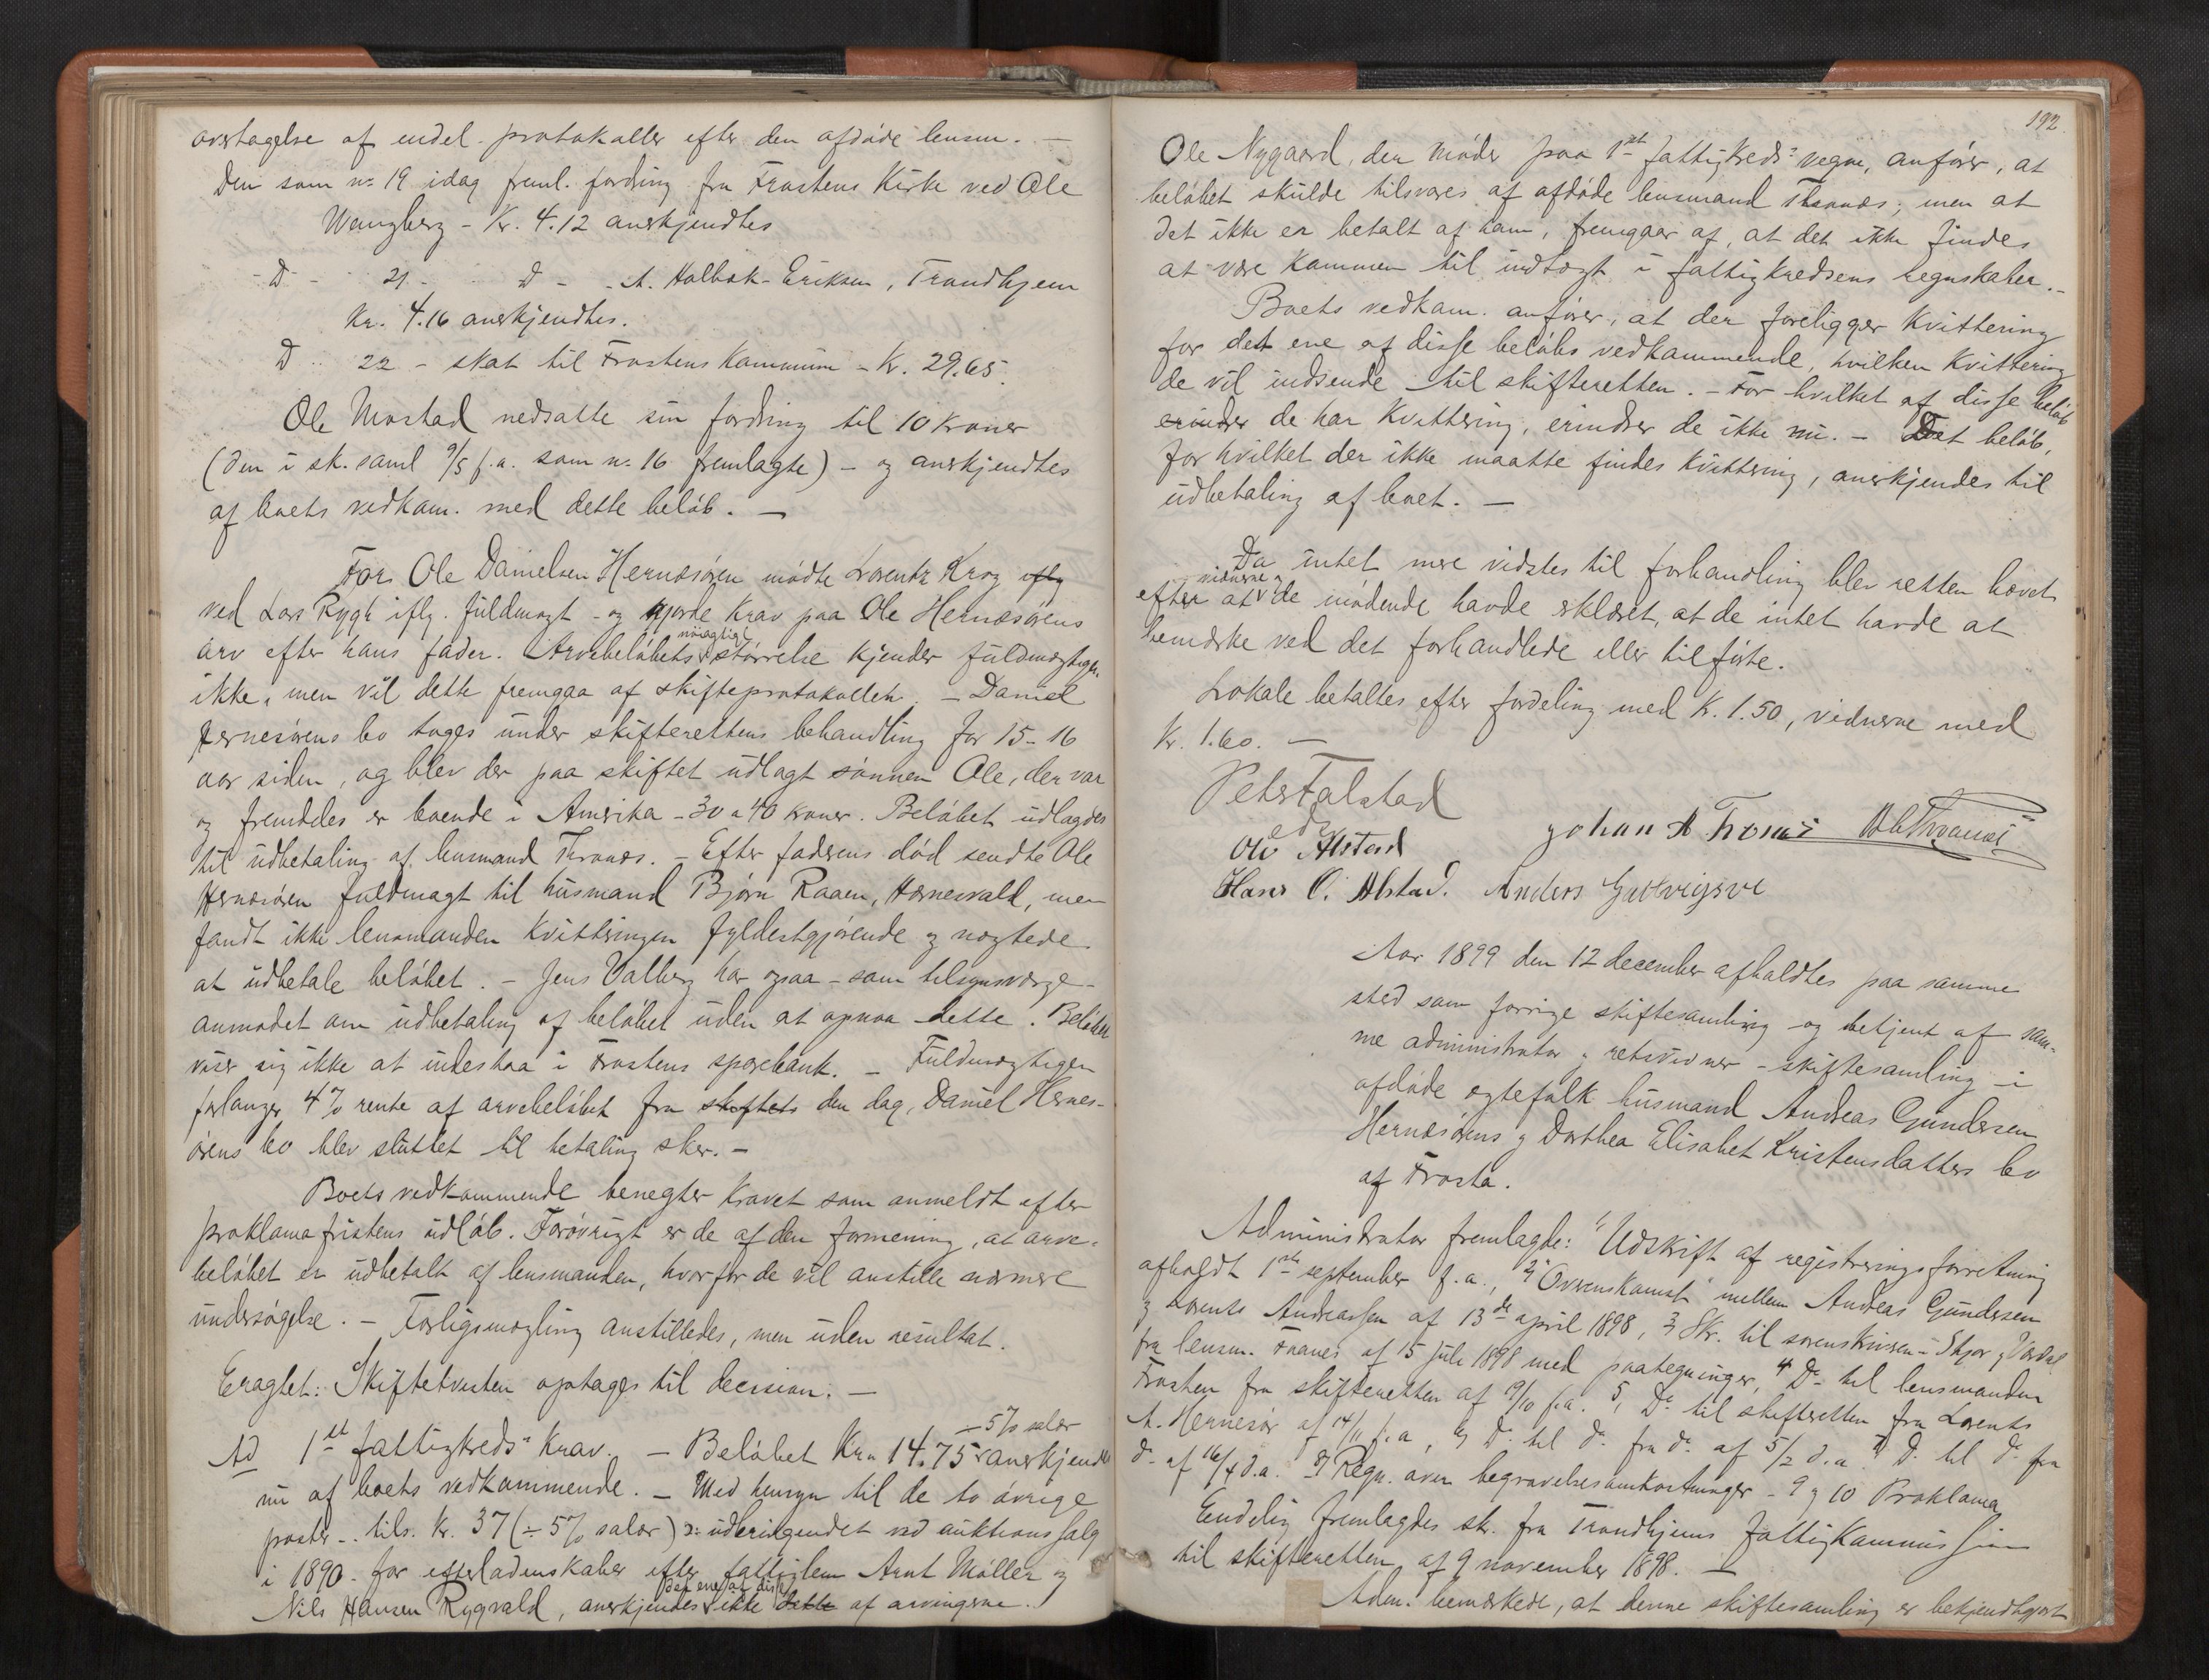 overtagelse af endel protokoller efter den afdøde lensm. —
Den som no 19 idag freml. fordring fra Frostens Kirke ved Ole
Wengberg - Kr. 4.12 anerkjendtes
- D - 21 - D - A. Holbak-Eriksen, Trondhjem
Kr. 4.16 anerkjendtes.
D 22 - skat til Frostens Kommune - Kr. 29.65.
Ole Mostad nedsatte sin fordring til 10 kroner
(den i sk. saml 9/5 f.a. som no 16 fremlagte) - og anerkjendtes
af boets vedkom. med dette beløb. —
For Ole Danielsen Hernesøren mødte Lorentz Krog
ved Lars Rygh iflg. fuldmagt - og gjorde krav paa Ole Hernesørens
arv efter hans fader. Arvebeløbets nøiagtige størrelse kjender fuldmægtigen
ikke, men vil dette fremgaa af skifteprotokollen. - Daniel
Hernesørens bo toges under skifterettens behandling for 15-16
aar siden, og blev der paa skiftet udlagt sønnen Ole, der var
og fremdeles er boende i Amerika - 30 a 40 kroner. Beløbet udlagdes
til udbetaling af lensmand Thronæs. - Efter faderens død sendte Ole
Hernesøren fuldmagt til husmand Bjørn Raaen, Hernesvald, men
fandt ikke lensmanden kvitteringen fyldestgjørende og nægtede
at udbetale beløbet. - Jens Valberg har ogsaa - som tilsynsværge -
anmodet om udbetaling af beløbet uden at opnaa dette. Beløbet
viser sig ikke at indestaa i Frostens sparebank. - Fuldmægtigen
forlanger 4% rente af arvebeløbet fra skiftets den dag, Daniel Hernes-
ørens bo blev sluttet til betaling sker. -
Boets vedkommende benegter kravet som anmeldt efter
proklamafristens udløb. Forøvrigt er de af den formening, at arve-
beløbet er udbetalt af lensmanden, hvorfor de vil anstille nærmere
undersøgelse. - Forligsmægling anstilledes, men uden resultat.
Eragtet: Skiftetvisten optages til decision. —
Ad 1st fattigkreds' krav. - Beløbet Kr. 14.75 ÷ 5% salær anerkjendtes
nu af boets vedkommende. - Med hensyn til de to øvrige
poster - tils. Kr. 37 (÷ 5% salær) ɔ: udbringendet ved auktionssalg
i 1890 for efterladenskaber efter fattiglem Arnt Møller og
Nils Hansen Rygvald, anerkjendes det ene af disse ikke dette af arvingerne.
192.
Ole Nygaard, der møder paa 1st fattigkreds' vegne, anfører, at
beløbet skulde tilsvares af afdøde lensmand Thronæs; men at
det ikke er betalt af ham, fremgaar af, at det ikke findes
at være kommen til indtægt i fattigkredsens regnskaber. -
Boets vedkom. anfører, at der foreligger kvittering
for det ene af disse beløbs vedkommende, hvilken kvittering
de vil indsende til skifteretten. - For hvilket af disse beløb
erindrer de har kvittering, erindrer de ikke nu. - Det beløb,
for hvilket der ikke maatte findes kvittering, anerkjendes til
udbetaling af boet. —
Da intet mere vidstes til forhandling blev retten hævet
efter at vidnerne og de mødende havde erklæret, at de intet havde at
bemærke ved det forhandlede eller tilførte.
Lokale betaltes efter fordeling med Kr. 1.50, vidnerne med
Kr. 1.60. —
Peter Falstad
Ole Alstad Johan A Fronæs
Hans O. Alstad. Anders
Aar 1899 den 12 december afholdtes paa samme
sted som forrige skiftesamling - og betjent af sam-
me administrator og retsvidner - skiftesamling i
afdøde egtefolk husmand Andreas Gundersen
Hernesørens og Dorthea Elisabet Kristensdatters bo
af Frosta.
Administrator fremlagde: 1, Udskrift af registreringsforretning
afholdt 1ste september f.a., 2, "Overenskomst" mellem Andreas Gundersen
og Lorents Andreassen af 13de april 1898, 3, Skr. til sorenskriveren i Stjør og Værdal
fra lensm. Fraanes af 15 juli 1898 med paategninger, 4, Do til lensmanden
Frosten fra skifteretten af 9/10 f.a. 5, Do til skifteretten fra Lorents
A. Hernesør af 14/11 f.a, 6, Do til do fra do af 5/2 d.a 7, Do til do fra
do af 16/4 d.a. 8, Regn. over begravelsesomkostninger - 9 og 10 Proklama
Endelig fremlagdes skr. fra Trondhjems fattigkommission
til skifteretten af 9 november 1898. —
Adm. bemærkede, at denne skiftesamling er bekjendtgjort